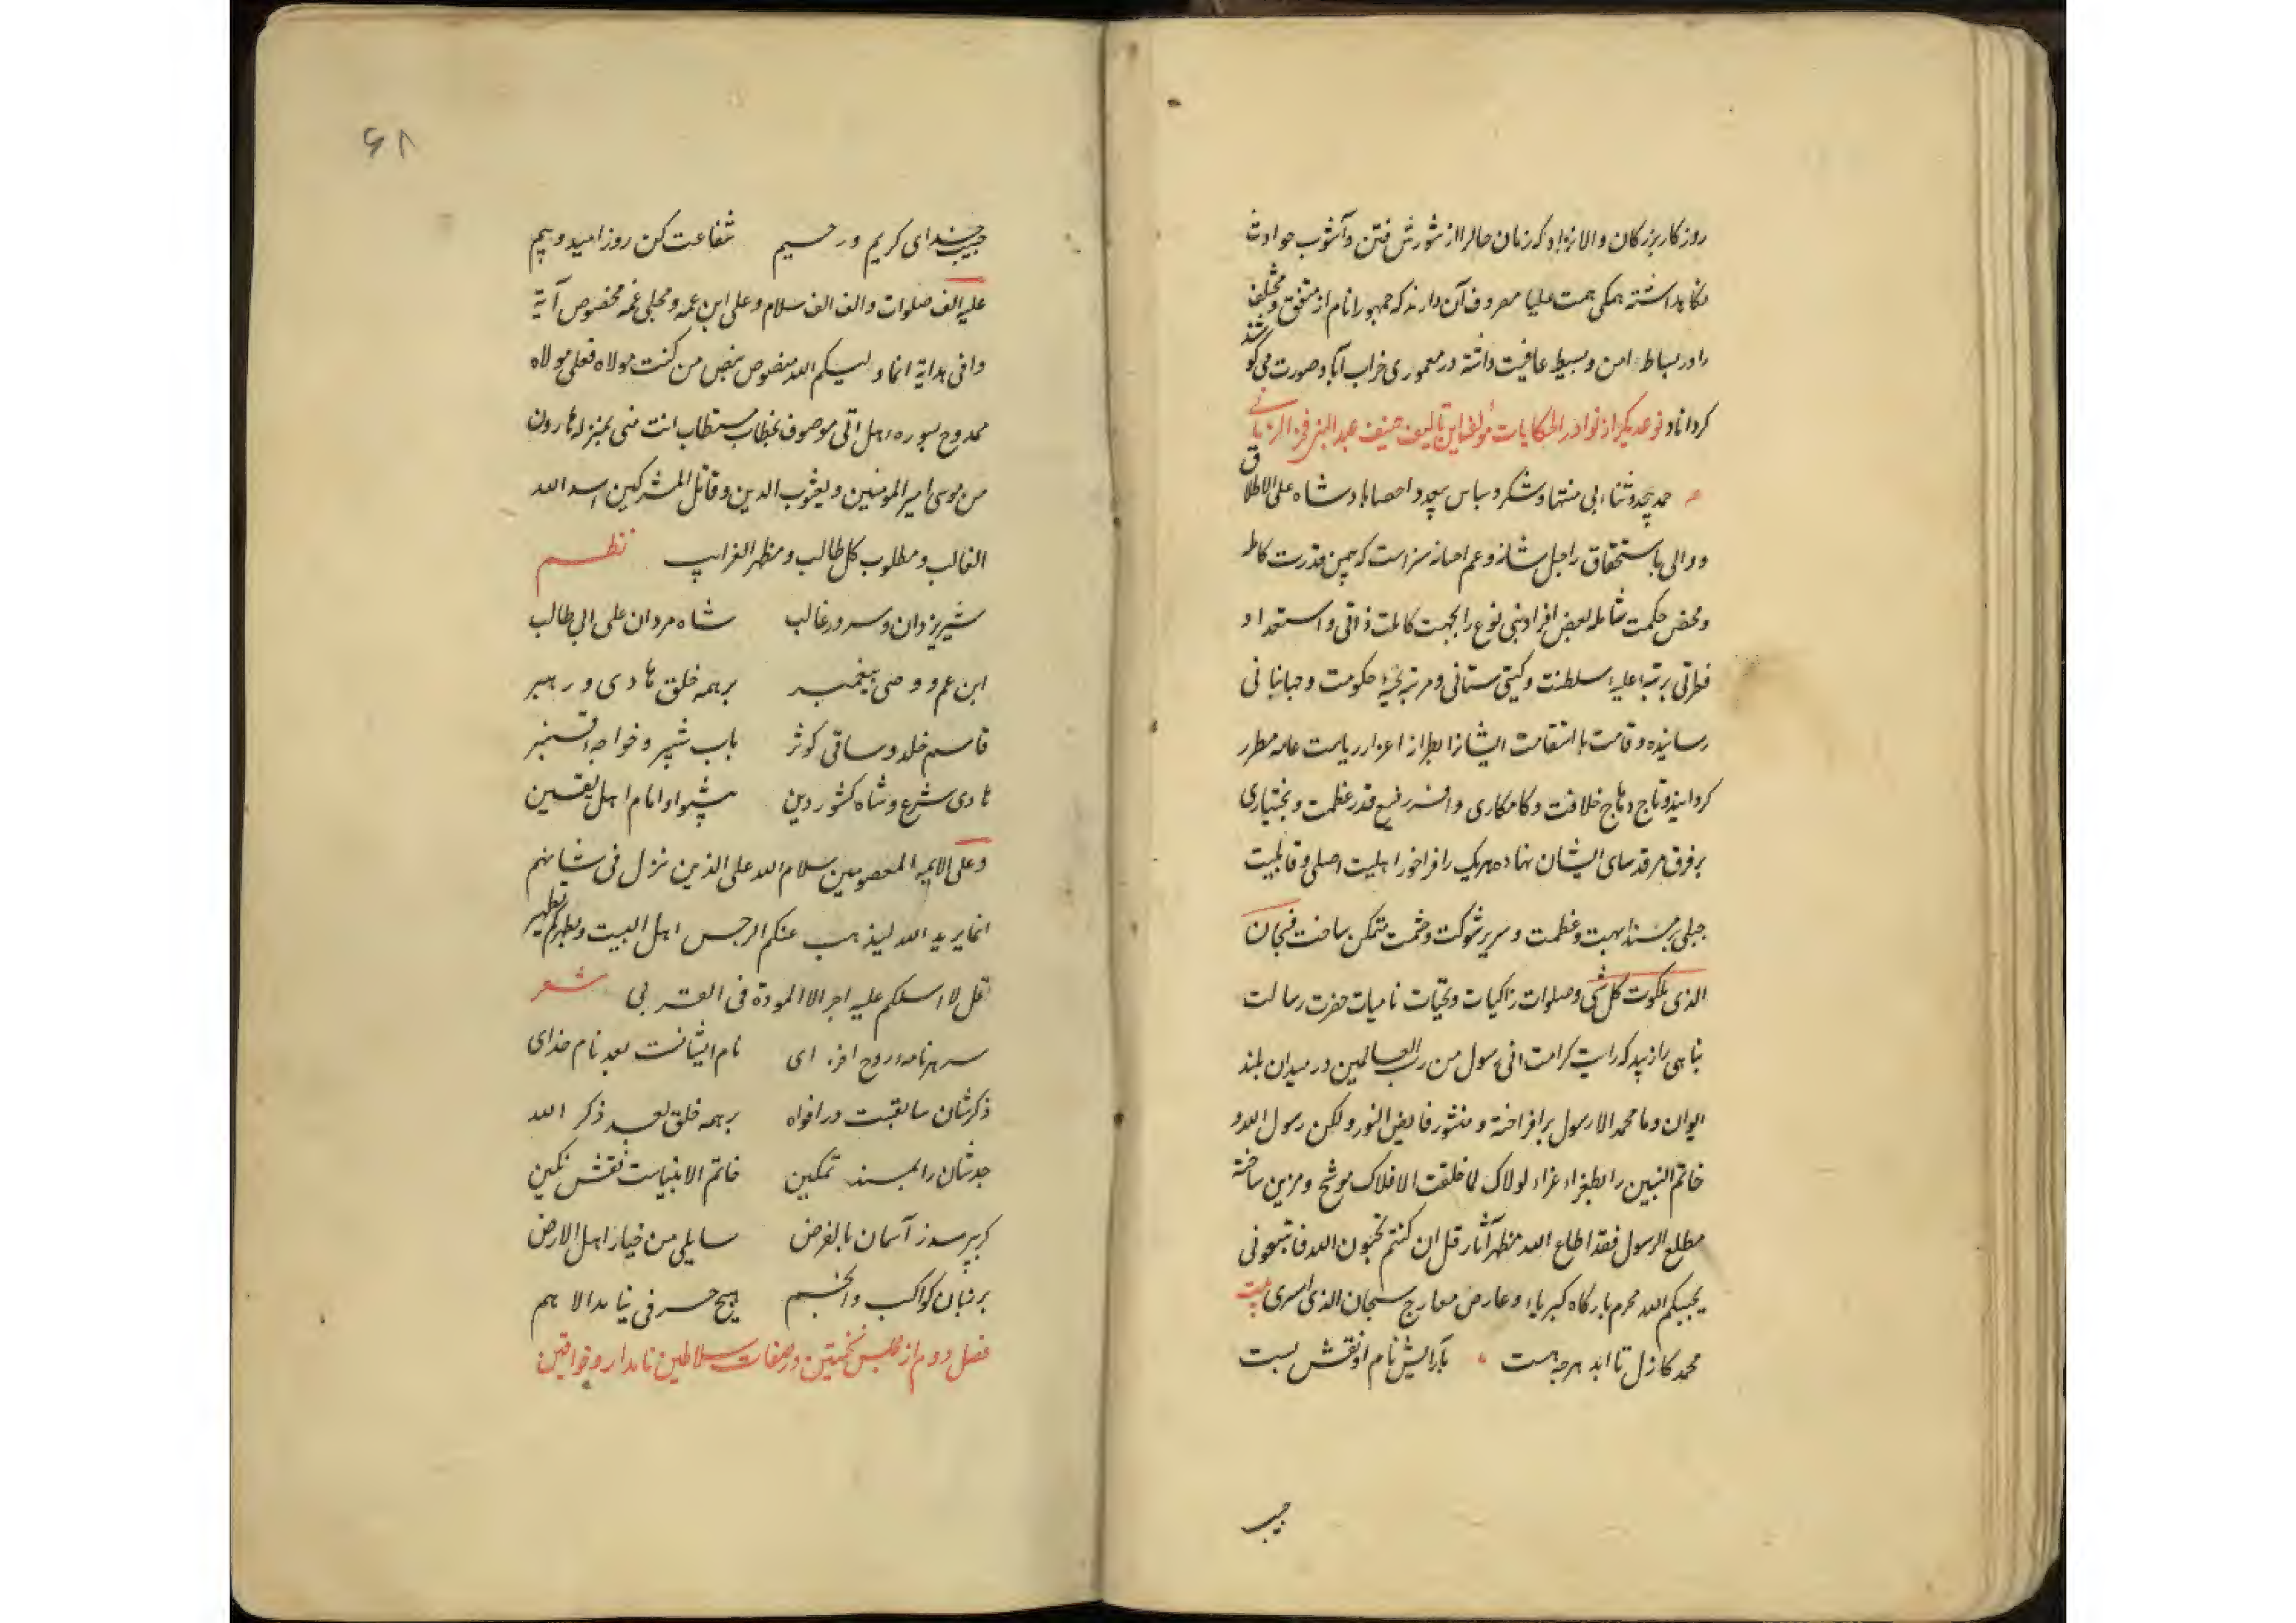 روزکار بزرکان والانژاد که زمان حال را از شورش فتن و آشوب حوادث
نکاهداشته همکی همت علیا مصروف آن دارند که جمهور انام از متفق و مختلف
را در بساط امن و بسیط عافیت داشته در معموری خراب آباد صورت می کوشند
کرداناد نوعدیکر از نوادر الحکایات مؤلف این تالیف حنیف عبد النبی فخر الزمانی
حمد بیحد و ثناء بی منتها و شکر و سپاس بیعد و احصا پادشاه علی الاطلاق
و والی باستحقاق را جل شانه و عم احسانه سزاست که بمین قدرت کامله
و محض حکمت شامله بعض افراد بنی نوع را بجهت کاملت ذاتی و استعداد
فطرتی برتبه علیه سلطنت و کیتی ستانی و مرتبه حکومت و جهانبانی
رسانیده و قامت با استقامت ایشانرا بطراز اعزاز ریاست عامه مطرز
کردانیده و تاج وهاج خلافت و کامکاری و افسر رفیع قدر عظمت و بختیاری
بر فرق فرقدسای ایشان نهاده هریک را فراخور اهلیت اصلی و قابلیت
جبلی بر مسند ابهت و عظمت و سریر شوکت و حشمت متمکن ساخت فسبحان
الذی بملکوت کل شی و صلوات زاکیات و تحیات نامیات حضرت رسالت
پناهی را زیبد که رایت کرامت انی رسول من رب العالمین در میدان بلند
ایوان و ما محمد الا رسول برافراخته و منثور فایض النور ولکن رسول الله و
خاتم النبیین را بطغراء غراء لولاک لما خلقت الافلاک موشح و مزین ساخته
مطلع الرسول فقد اطاع الله مظهر آثار قل ان کنتم تحبون الله فاتبعونی
یحببکم الله محرم بارکاه کبریاء و عارض معارج سبحان الذی اسری بیت
محمد کازل تا ابد هرچه هست بآرایش نام او نقش بست
حبیب
۶۸
حبیب خدای کریم و رحیم شفاعت کن روز امید و بیم
علیه الف صلوات و الف الف سلام و علی ابن عمه و مجلی غمه مخصوص آیة
وافی هدایة انما ولیکم الله منصوص بنص من کنت مولاه فعلی مولاه
ممدوح بسوره هل اتی موصوف بخطاب مستطاب انت منی بمنزله هارون
من موسی امیر المومنین و یعثوب الدین و قاتل المشرکین اسد الله
الغالب و مطلوب کل طالب و مظهر الغرایب نظم
شیر یزدان و سرور غالب شاه مردان علی ابی طالب
ابن عم و وصی پیغمبر بر همه خلق هادی و رهبر
قاسم خلد و ساقی کوثر باب شبیر و خواجه قنبر
هادی شرع و شاه کشور دین پیشوا و امام اهل یقین
و علی الایمه المعصومین سلام الله علی الذین نزل فی شانهم
انما یرید الله لیذهب عنکم الرجس اهل البیت و یطهرکم تطهیر
قل لا اسلکم علیه اجرا الا المودة فی القربی شعر
سر هر نامه روح افزای نام ایشانست بعد نام خدای
ذکرشان سابقست در افواه بر همه خلق بعد ذکر الله
جدشان را بمسند تمکین خاتم الانبیاست نقش نکین
کر بپرسد ز آسمان بالفرض سایلی من خیار اهل الارض
بر زبان کواکب و انجم هیچ حرفی نیاید الا هم
فصل دوم از مجلس نخستین در صفات سلاطین نامدار و خواقین